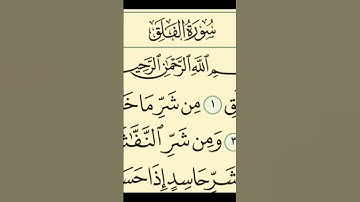 سُورَةُ ٱلْفَلَقِ
ٱللَّهِ ٱلرَّحْمَٰنِ ٱلرَّحِي
١ مِن شَرِّ مَا خَ
٣ وَمِن شَرِّ ٱلنَّفَّٰ
شَرِّ حَاسِدٍ إِذَا حَسَ